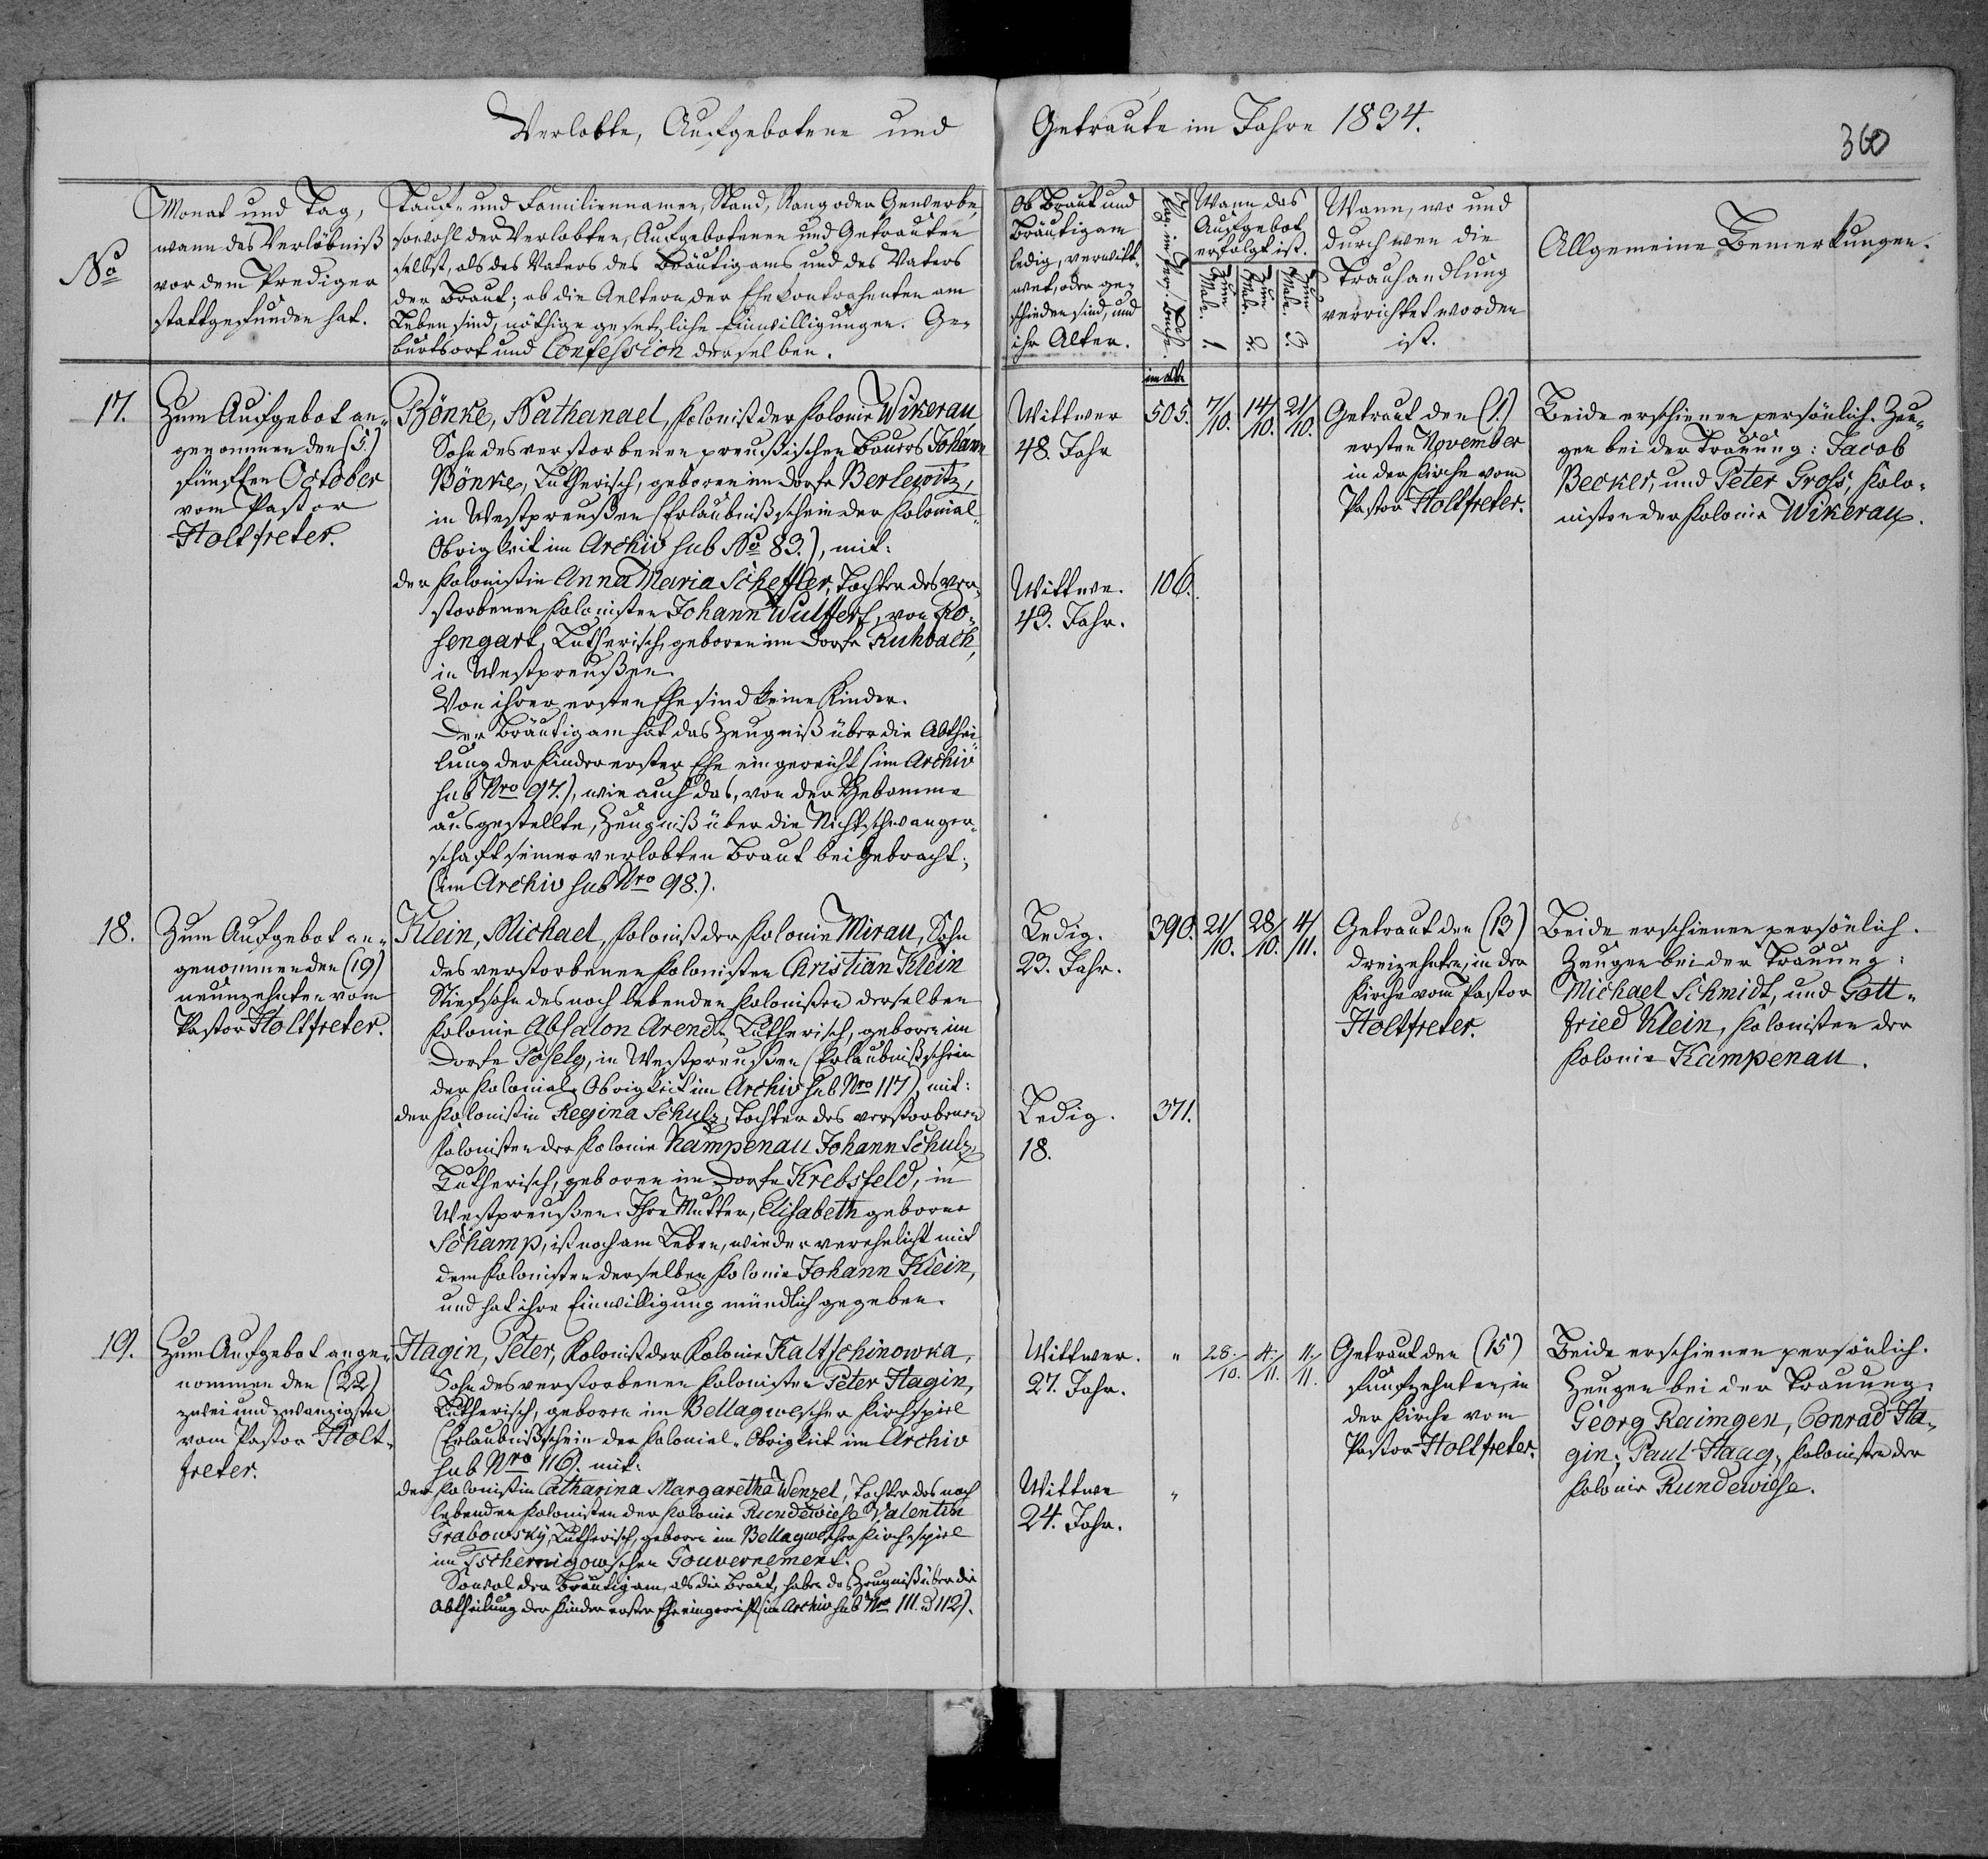 Verlobte, Aufgebotene und
Getraute im Jahre 1834.
360
No
Monat und Tag,
wann das Verlöbniß
vor dem Prediger
stattgefunden hat.
Tauf- und Familiennamen, Stand, Rang oder Gewerbe,
sowohl der Verlobten, Aufgebotenen und Getrauten
selbst, als des Vaters des Bräutigams und des Vaters
der Braut; ob die Aeltern der Ehekontrahenten am
Leben sind, nöthige gesetzliche Einwilligungen. Ge-
burtsort und Confession derselben.
Ob Braut und
Bräutigam
ledig, verwitt-
wet, oder ge-
schieden sind, und
ihr Alter.
Pag. im Pers. Buche.
Wann das
Aufgebot
erfolgt ist.
Zum 1. Male.
Zum 2. Male.
Zum 3. Male.
Wann, wo und
durch wen die
Trauhandlung
verrichtet worden
ist.
Allgemeine Bemerkungen.
17.
Zum Aufgebot an-
genommen den (5)
fünften October
vom Pastor
Holtfreter.
Bönke, Nathanael, Kolonist der Kolonie Wikerau
Sohn des verstorbenen preußischen Bauers Johann
Bönke, Lutherisch, geboren im Dorfe Berlewitz,
in Westpreußen (Erlaubnißschein der Kolonial-
Obrigkeit im Archiv sub No 83.), mit:
der Kolonistin Anna Maria Scheffler, Tochter des ver-
storbenen Kolonisten Johann Wulffert, von Ro-
sengart, Lutherisch, geboren im Dorfe Kuhback,
in Westpreußen.
Von ihrer ersten Ehe sind keine Kinder.
Der Bräutigam hat das Zeugniß über die Abthei-
lung der Kinder erster Ehe eingereicht (im Archiv
sub Nro 97.), wie auch das, von der Hebamme
ausgestellte, Zeugniß über die Nichtschwanger-
schaft seiner verlobten Braut beigebracht,
(im Archiv sub Nro 98.).
Wittwer
48. Jahr
Wittwe.
43. Jahr.
im alten
505.
106.
7/10. 14/10. 21/10.
Getraut den (1.)
ersten November
in der Kirche vom
Pastor Holtfreter.
Beide erschienen persönlich. Zeu-
gen bei der Trauung: Jacob
Becker, und Peter Groß, Kolo-
nisten der Kolonie Wikerau.
18.
Zum Aufgebot an-
genommen den (19)
neunzehnten vom
Pastor Holtfreter.
Klein, Michael, Kolonist der Kolonie Mirau, Sohn
des verstorbenen Kolonisten Christian Klein
Stiefsohn des noch lebenden Kolonisten derselben
Kolonie Absalon Arendt, Lutherisch, geboren im
Dorfe Poselg, in Westpreußen (Erlaubnißschein
der Kolonial-Obrigkeit im Archiv sub Nro 117), mit:
der Kolonistin Regina Schulz, Tochter des verstorbenen
Kolonisten der Kolonie Kampenau Johann Schulz,
Lutherisch, geboren im Dorfe Krebsfeld, in
Westpreußen. Ihre Mutter, Elisabeth geborne
Schamp, ist noch am Leben, wieder verehelicht mit
dem Kolonisten derselben Kolonie Johann Klein,
und hat ihre Einwilligung mündlich gegeben.
Ledig.
23. Jahr.
Ledig.
18.
390.
371.
21/10. 28/10. 4/11.
Getraut den (13)
dreizehnten, in der
Kirche vom Pastor
Holtfreter.
Beide erschienen persönlich.
Zeugen bei der Trauung:
Michael Schmidt, und Gott-
fried Klein, Kolonisten der
Kolonie Kampenau.
19.
Zum Aufgebot ange-
nommen den (22)
zwei und zwanzigsten
vom Pastor Holt-
freter.
Hagin, Peter, Kolonist der Kolonie Kaltschinowka,
Sohn des verstorbenen Kolonisten Peter Hagin,
Lutherisch, geboren im Bellagweschen Kirchspiel
(Erlaubnißschein der Kolonial-Obrigkeit im Archiv
sub Nro 116). mit:
der Kolonistin Catharina Margaretha Wenzel, Tochter des noch
lebenden Kolonisten der Kolonie Rundewiese Valentin
Grabowsky, Lutherisch, geboren im Bellagweschen Kirchspiel
im Tschernigowschen Gouvernement.
Sowol der Bräutigam, als die Braut, haben das Zeugniß über die
Abtheilung der Kinder erster Ehe eingereicht (im Archiv sub Nro 111. u 112).
Wittwer.
27. Jahr.
Wittwe
24. Jahr.
"
"
28./10. 4./11. 11./11.
Getraut den (15)
funfzehnten, in
der Kirche vom
Pastor Holtfreter.
Beide erschienen persönlich.
Zeugen bei der Trauung:
Georg Raimgen, Conrad Ha-
gin, Paul Haag, Kolonisten der
Kolonie Rundewiese.